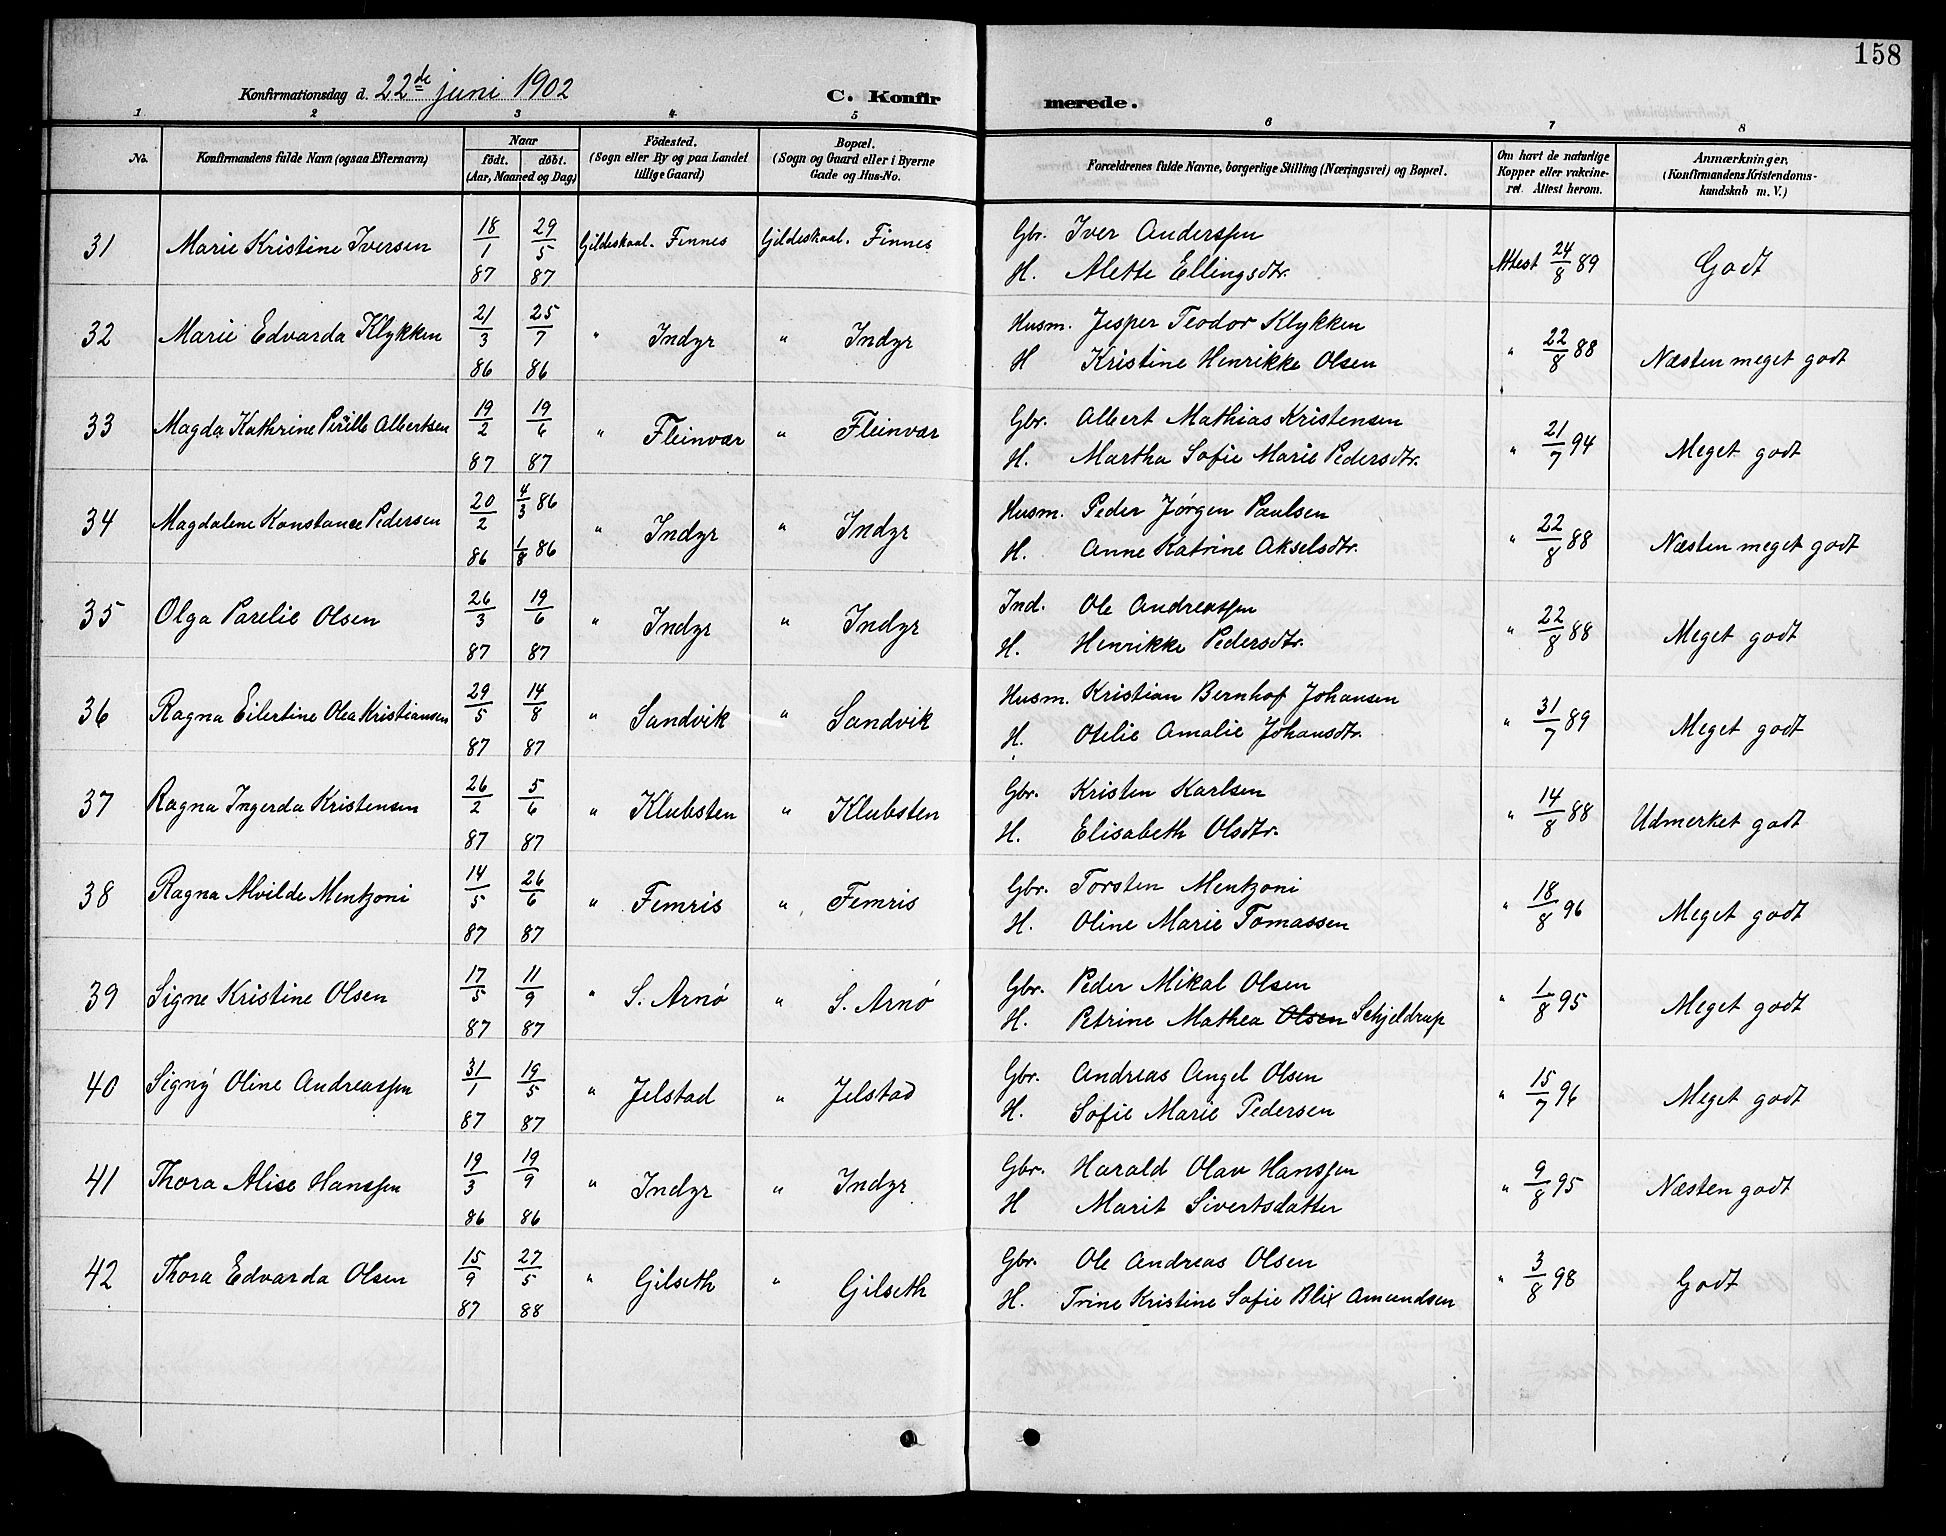 158
Konfirmationsdag d. 22de juni 1902
C. Konfirmerede.
1 2 3 4 5 6 7 8
No. | Konfirmandens fulde Navn (ogsaa Efternavn) | Naar født. døbt. (Aar, Maaned og Dag) | Fødested. (Sogn eller By og paa Landet tillige Gaard) | Bopæl. (Sogn og Gaard eller i Byerne Gade og Hus-No. | Forældrenes fulde Navne, borgerlige Stilling (Næringsvei) og Bopæl. | Om havt de naturlige Kopper eller vakcineret. Attest herom. | Anmærkninger. (Konfirmandens Kristendomskundskab m. V.)
31 Marie Kristine Iversen 18/1 87 29/5 87 Gildeskaal. Finnes Gildeskaal. Finnes Gbr. Iver Anderssen Attest 24/8 89 Godt
H. Alette Ellingsdtr.
32 Marie Edvarda Klykken 21/3 86 25/7 86 " Indyr " Indyr Husm. Jesper Teodor Klykken " 22/8 88 Næsten meget godt
H Kristine Henrikke Olsen
33 Magda Kathrine Pernille Albertsen 19/2 87 19/6 87 " Fleinvær " Fleinvær Gbr. Albert Mathias Kristensen " 21/7 94 Meget godt
H. Martha Sofie Marie Pedersdtr.
34 Magdalene Konstance Pedersen 20/2 86 4/3 86 1/8 86 " Indyr " Indyr Husm. Peder Jørgen Paulsen " 22/8 88 Næsten meget godt
H. Anne Katrine Akselsdtr.
35 Olga Parelie Olsen 26/3 87 19/6 87 " Indyr " Indyr Ind. Ole Andreassen " 22/8 88 Meget godt
H. Henrikke Pedersdtr.
36 Ragna Eilertine Olea Kristiansen 29/5 87 14/8 87 " Sandvik " Sandvik Husm. Kristian Bernhof Johansen " 31/7 89 Meget godt
H. Otelie Amalie Johansdtr.
37 Ragna Ingerda Kristensen 26/2 87 5/6 87 " Klubsten " Klubsten Gbr. Kristen Karlsen " 14/8 88 Udmerket godt
H. Elisabeth Olsdtr.
38 Ragna Alvilde Mentzoni 14/5 87 26/6 87 " Femris " Femris Gbr. Torsten Mentzoni " 18/8 96 Meget godt
H. Oline Marie Tomassen
39 Signe Kristine Olsen 17/5 87 11/9 87 " S. Arnø " S. Arnø Gbr. Peder Mikal Olsen " 1/8 95 Meget godt
H. Petrine Mathea Olsen Schjeldrup
40 Signy Oline Andreassen 31/1 87 19/5 87 " Jelstad " Jelstad Gbr. Andreas Angel Olsen " 15/7 96 Meget godt
H. Sofie Marie Pedersen
41 Thora Alise Hanssen 19/3 86 19/9 86 " Indyr " Indyr Gbr. Harald Olav Hanssen " 9/8 95 Næsten godt
H Marit Sivertsdatter
42 Thora Edvarda Olsen 15/9 87 27/5 88 " Gilseth " Gilseth Gbr. Ole Andreas Olsen " 3/8 98 Godt
H. Trine Kristine Sofie Blix Amundsen